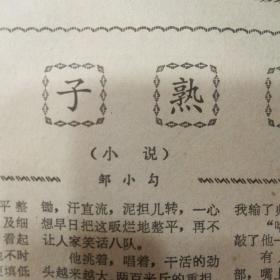 子 熟
（小 说）
邹小勾
平整
及细
看起
也不时
填低
锄，汗直流，泥担儿转，一心
想早日把这畈烂地整平，再不
让人家笑话八队。
他挑着，唱着，干活的劲
头越来越大，两百来斤的重担，
我输了
敲了他一
有
部，嘴